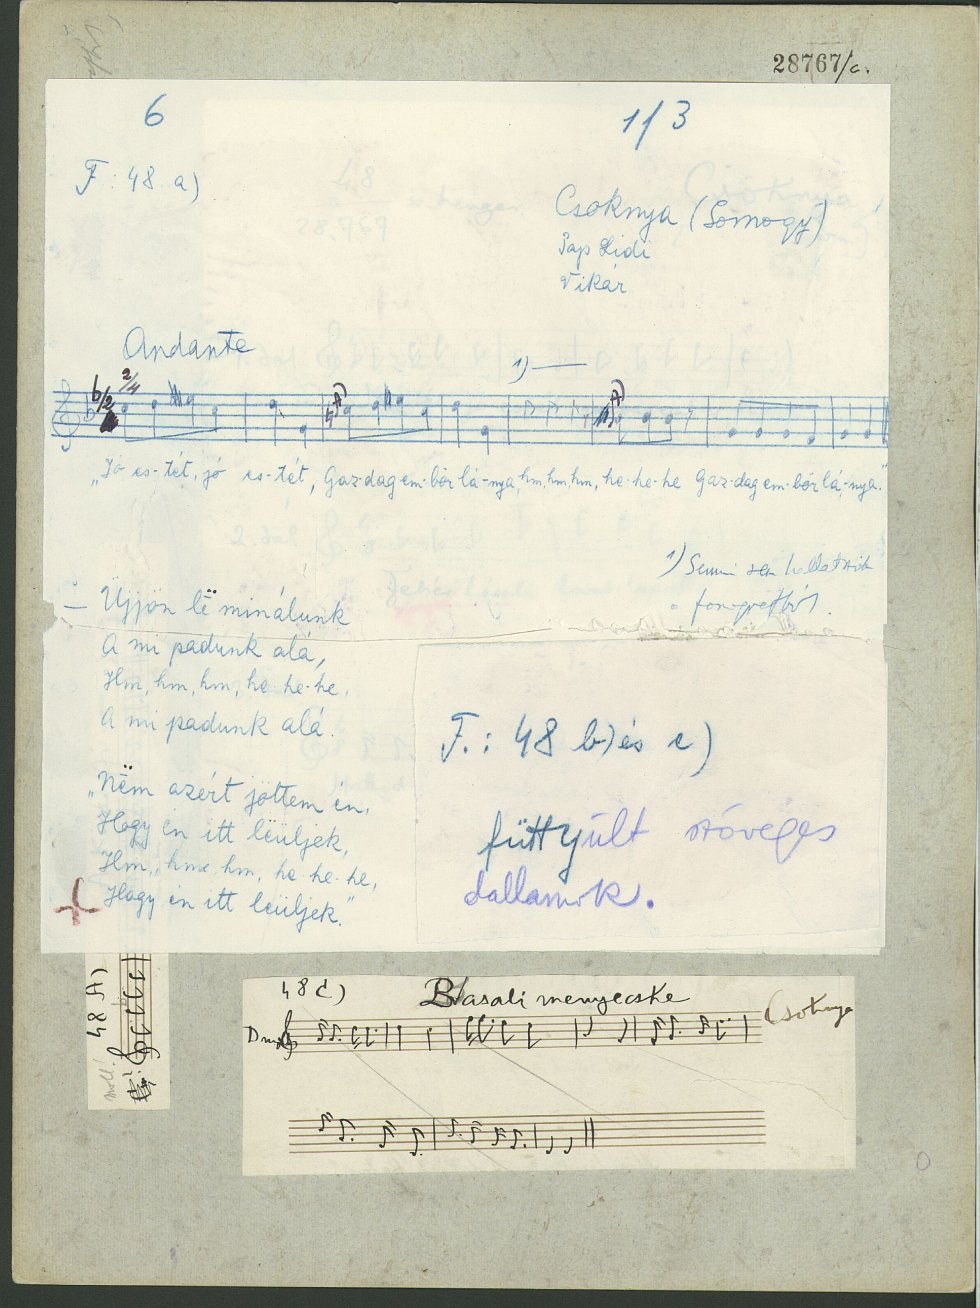 28767/c.
6
1/3
F: 48 a)
Csoknya (Somogy)
Pap Lidi
Vikár
Andante
2/4
1)
A)
A)
„Jó es-tét, jó es-tét, Gaz-dag em-bör lá-nya, hm, hm, hm, he-he-he Gaz-dag em-bör lá-nya."
1) Semmi sem hallatszik
a fonográfból.
– Üjjön lë minálunk
A mi padunk alá,
Hm, hm, hm, he-he-he,
A mi padunk alá.
„Nëm azért jöttem én,
Hogy én itt leüljek,
Hm, hm, hm, he-he-he,
Hogy én itt leüljek."
F.: 48 b) és c)
füttyült szöveges
dallamok.
48 A)
moll!
48 c)
Barasli menyecske
Csoknya
D moll